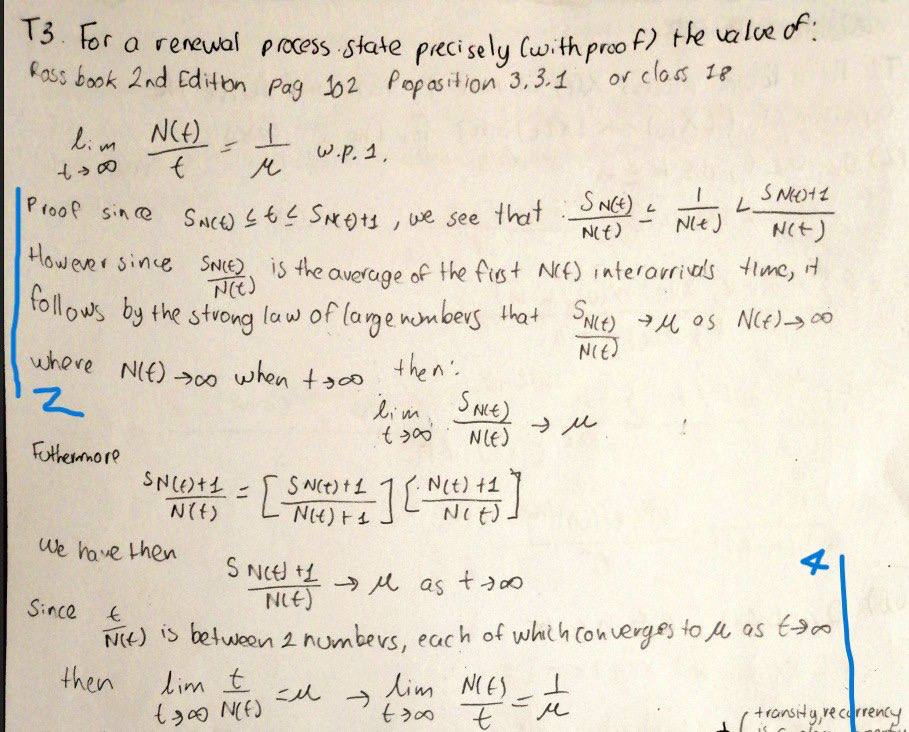 T3. For a renewal process state precisely (with proof) the value of:
Ross book 2nd Edition pag 102 Proposition 3.3.1 or class 18
lim t→∞ N(t)/t = 1/μ w.p.1.
Proof since S_N(t) ≤ t ≤ S_N(t)+1, we see that S_N(t)/N(t) ≤ 1/N(t) < S_N(t)+1/N(t)
However since S_N(t)/N(t) is the average of the first N(t) interarrivals time, it
follows by the strong law of large numbers that S_N(t)/N(t) → μ as N(t)→∞
where N(t)→∞ when t→∞ then:
2
lim t→∞ S_N(t)/N(t) → μ
Futhermore
S_N(t)+1/N(t) = [S_N(t)+1/N(t)+1] [N(t)+1/N(t)]
We have then
4
S_N(t)+1/N(t) → μ as t→∞
Since t/N(t) is between 2 numbers, each of which converges to μ as t→∞
then lim t→∞ t/N(t) = μ → lim t→∞ N(t)/t = 1/μ
(transity, recurrency